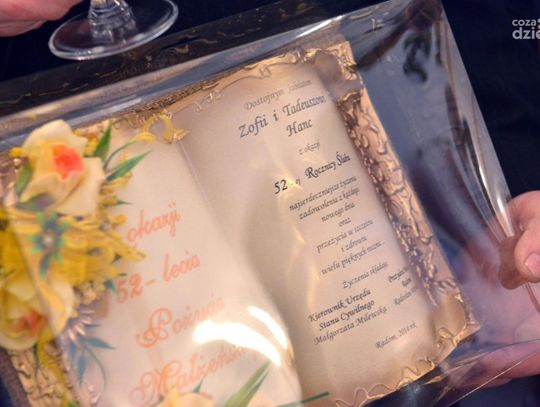 okazji
52-lecia
Pożycia
Dostojnym Jubilatom
Zofii i Tadeuszowi
Hanc
z okazji
52-ej Rocznicy Ślubu
najserdeczniejsze życzenia
zadowolenia z każdego
nowego dnia
oraz
przeżycia w szczęściu
i zdrowiu
wielu pięknych rocznic.
Życzenia składają
Kierownik Urzędu
Stanu Cywilnego
Małgorzata Milewska
Radom, 2018 rok
coza
dzie